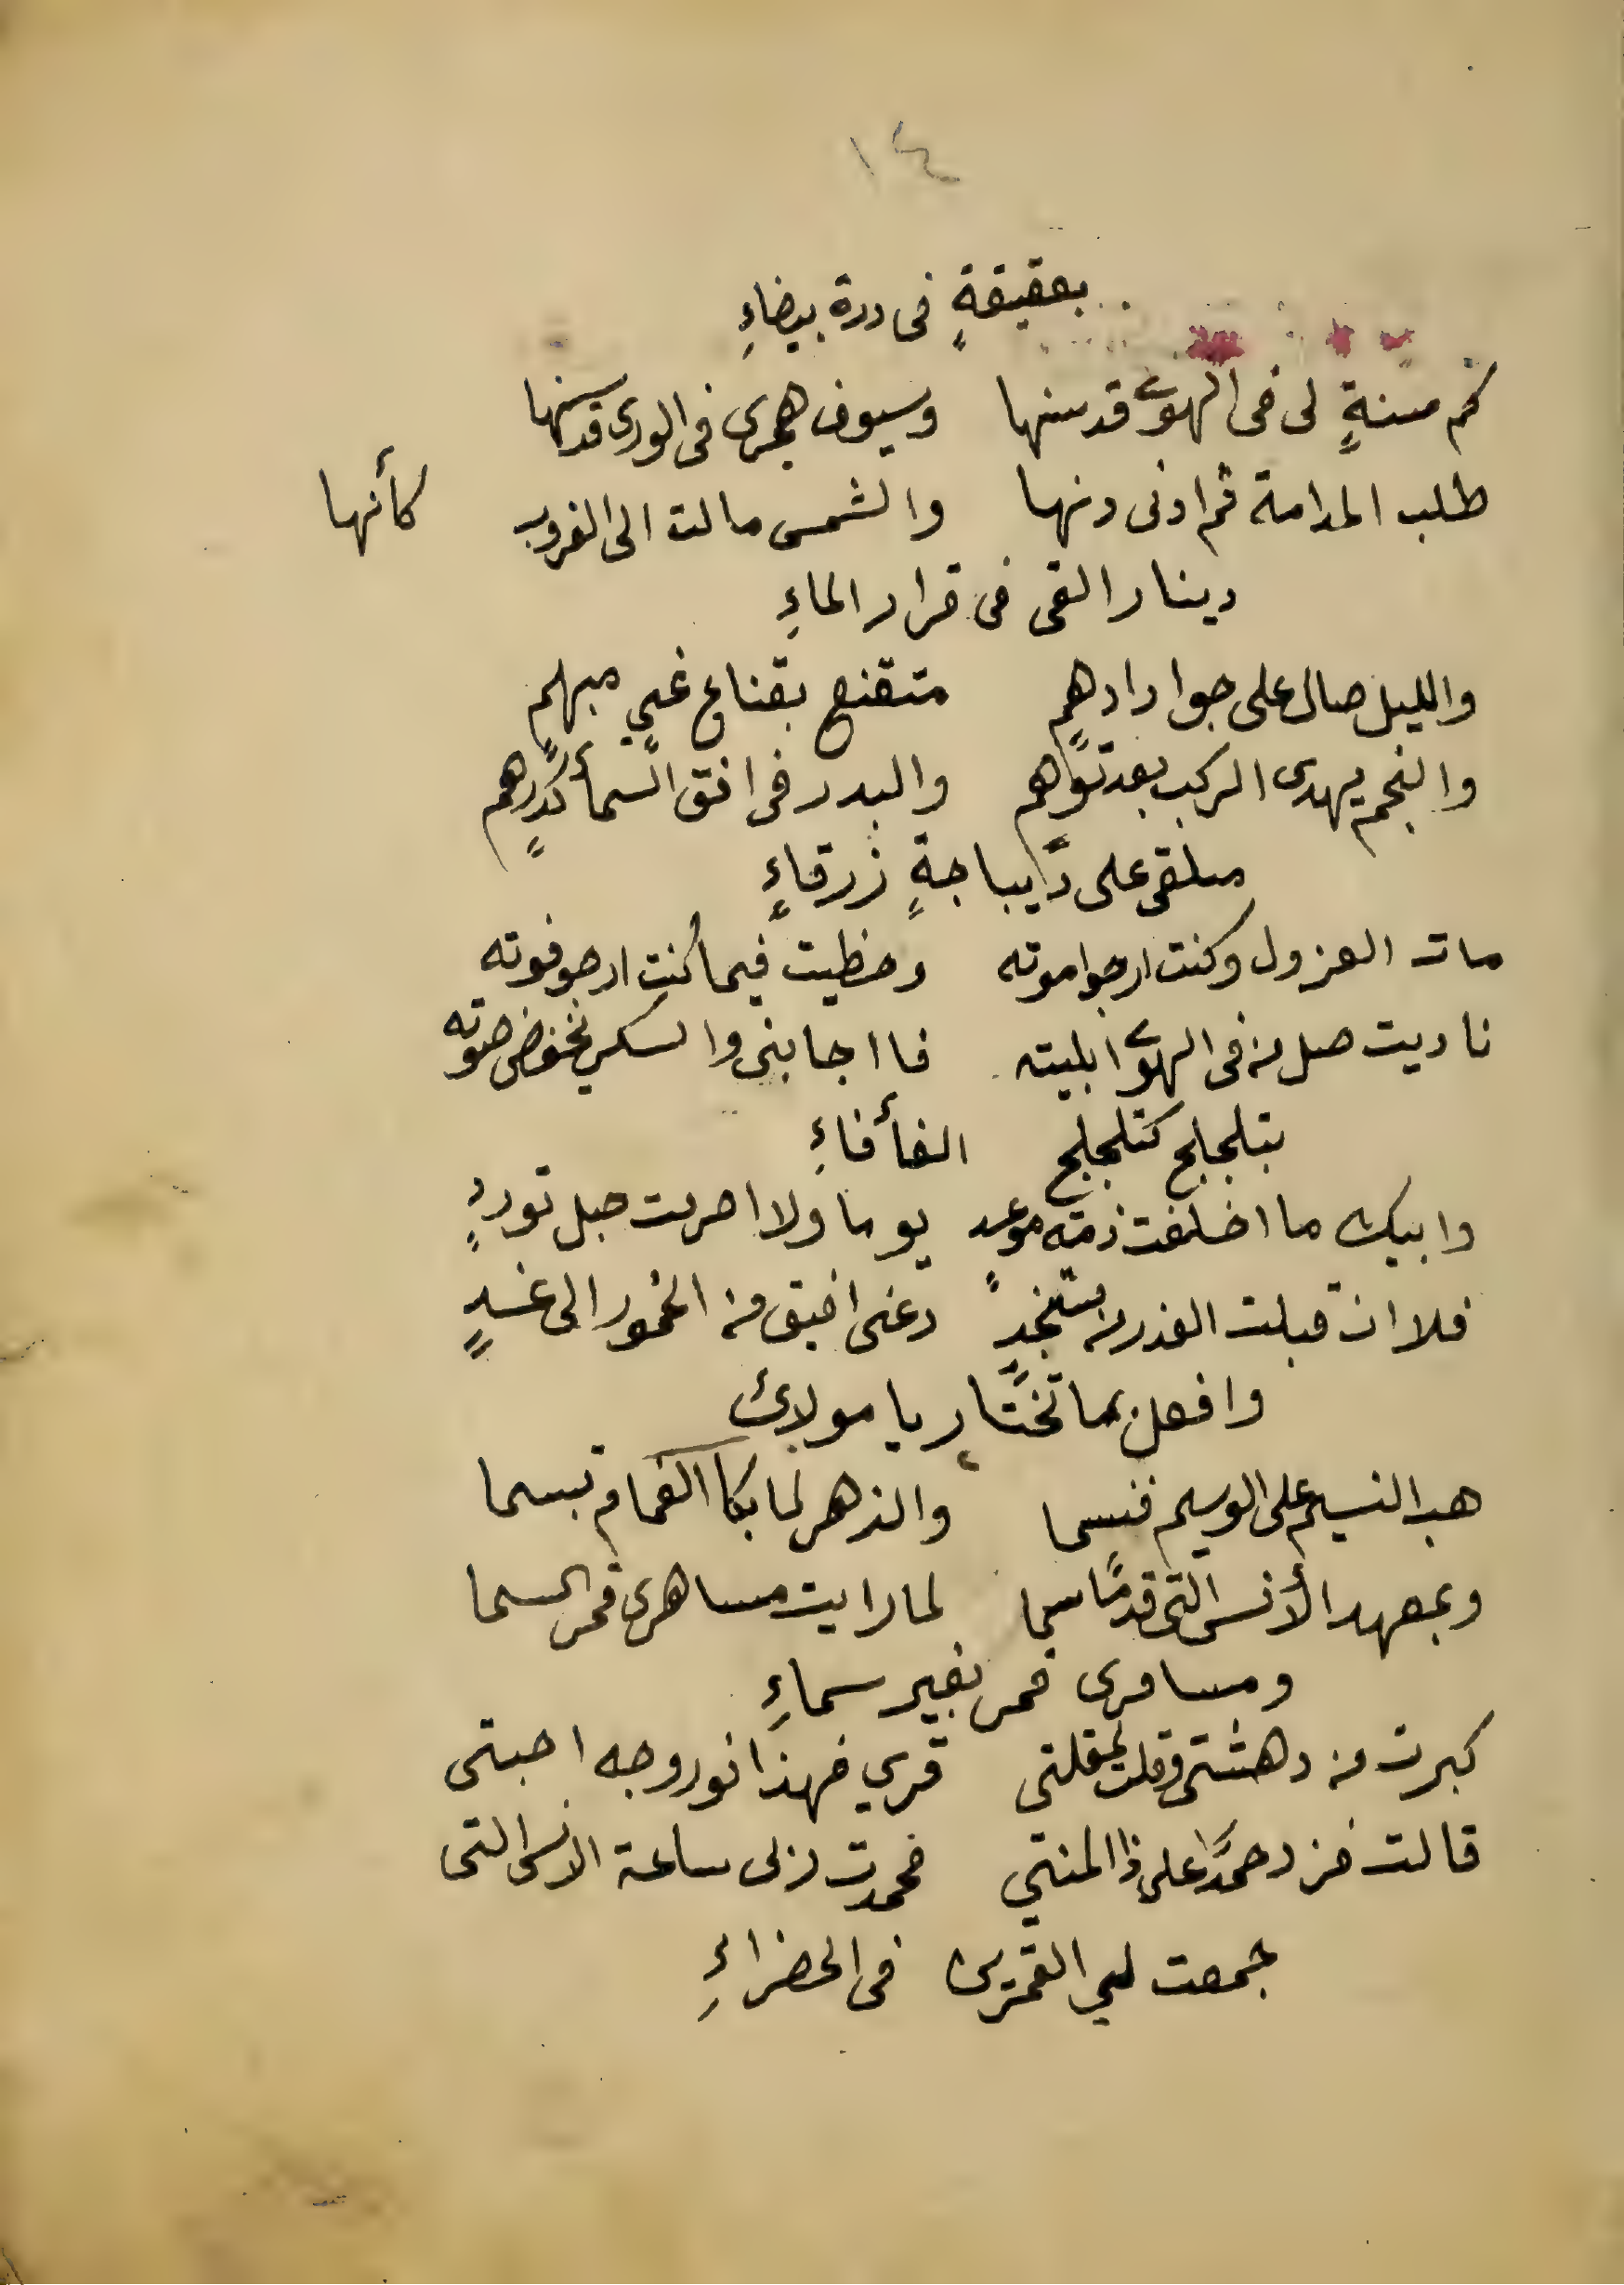 ١٤
بعقيقةٍ فى درة بيضاءِ
كم سنةٍ لى فى الهوى قد سنها وسيوف هجرى فى الورى قد سنها
طلب المدامة قم اونى دنها والشمس مالت الى الغروب كأنها
دينار القى فى قرار الماءِ
والليل صال على جواد ادهمٍ متقنع بقناع غيٍ مبهمٍ
والنجم يهدى الركب بعد توّاهم والبدر فى افق السمأ كدرهمٍ
ملقى على ديباجةٍ زرقاءٍ
مات العزول وكنت ارجوا موته وحظيت فيما كنت ارجو فوته
ناديت صل من فى الهوى ابليته فا اجابنى والسكر يخفض صوته
بتلجلج كتلجلج الفأفاءِ
وابيك ما اخلفت ذمته موعد يوما ولا احرمت حبل توددٍ
فلا ان قبلت العذر من مستنجدٍ دعنى افيق من الخمور الى غدٍ
وافعل بما تختار يا مولائ
هب النسيم على الوسيم فنسما والزهر لما بكا الغمام تبسما
وبمعهد الأنس التى قدمًا سما لما رايت مساهرى قمر السما
ومسامرى قمر بغير سماءِ
كبرت من دهشتى وقلت لمقلتى قري فهذا نور وجه احبتى
قالت فزد حمدًا على ذا المنتي فحمدت ربى ساعة الانس التى
جمعت لي القمرين فى الخضراءِ